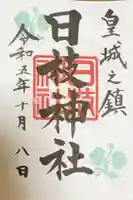 皇城之鎮
日枝神社
令和五年十月八日